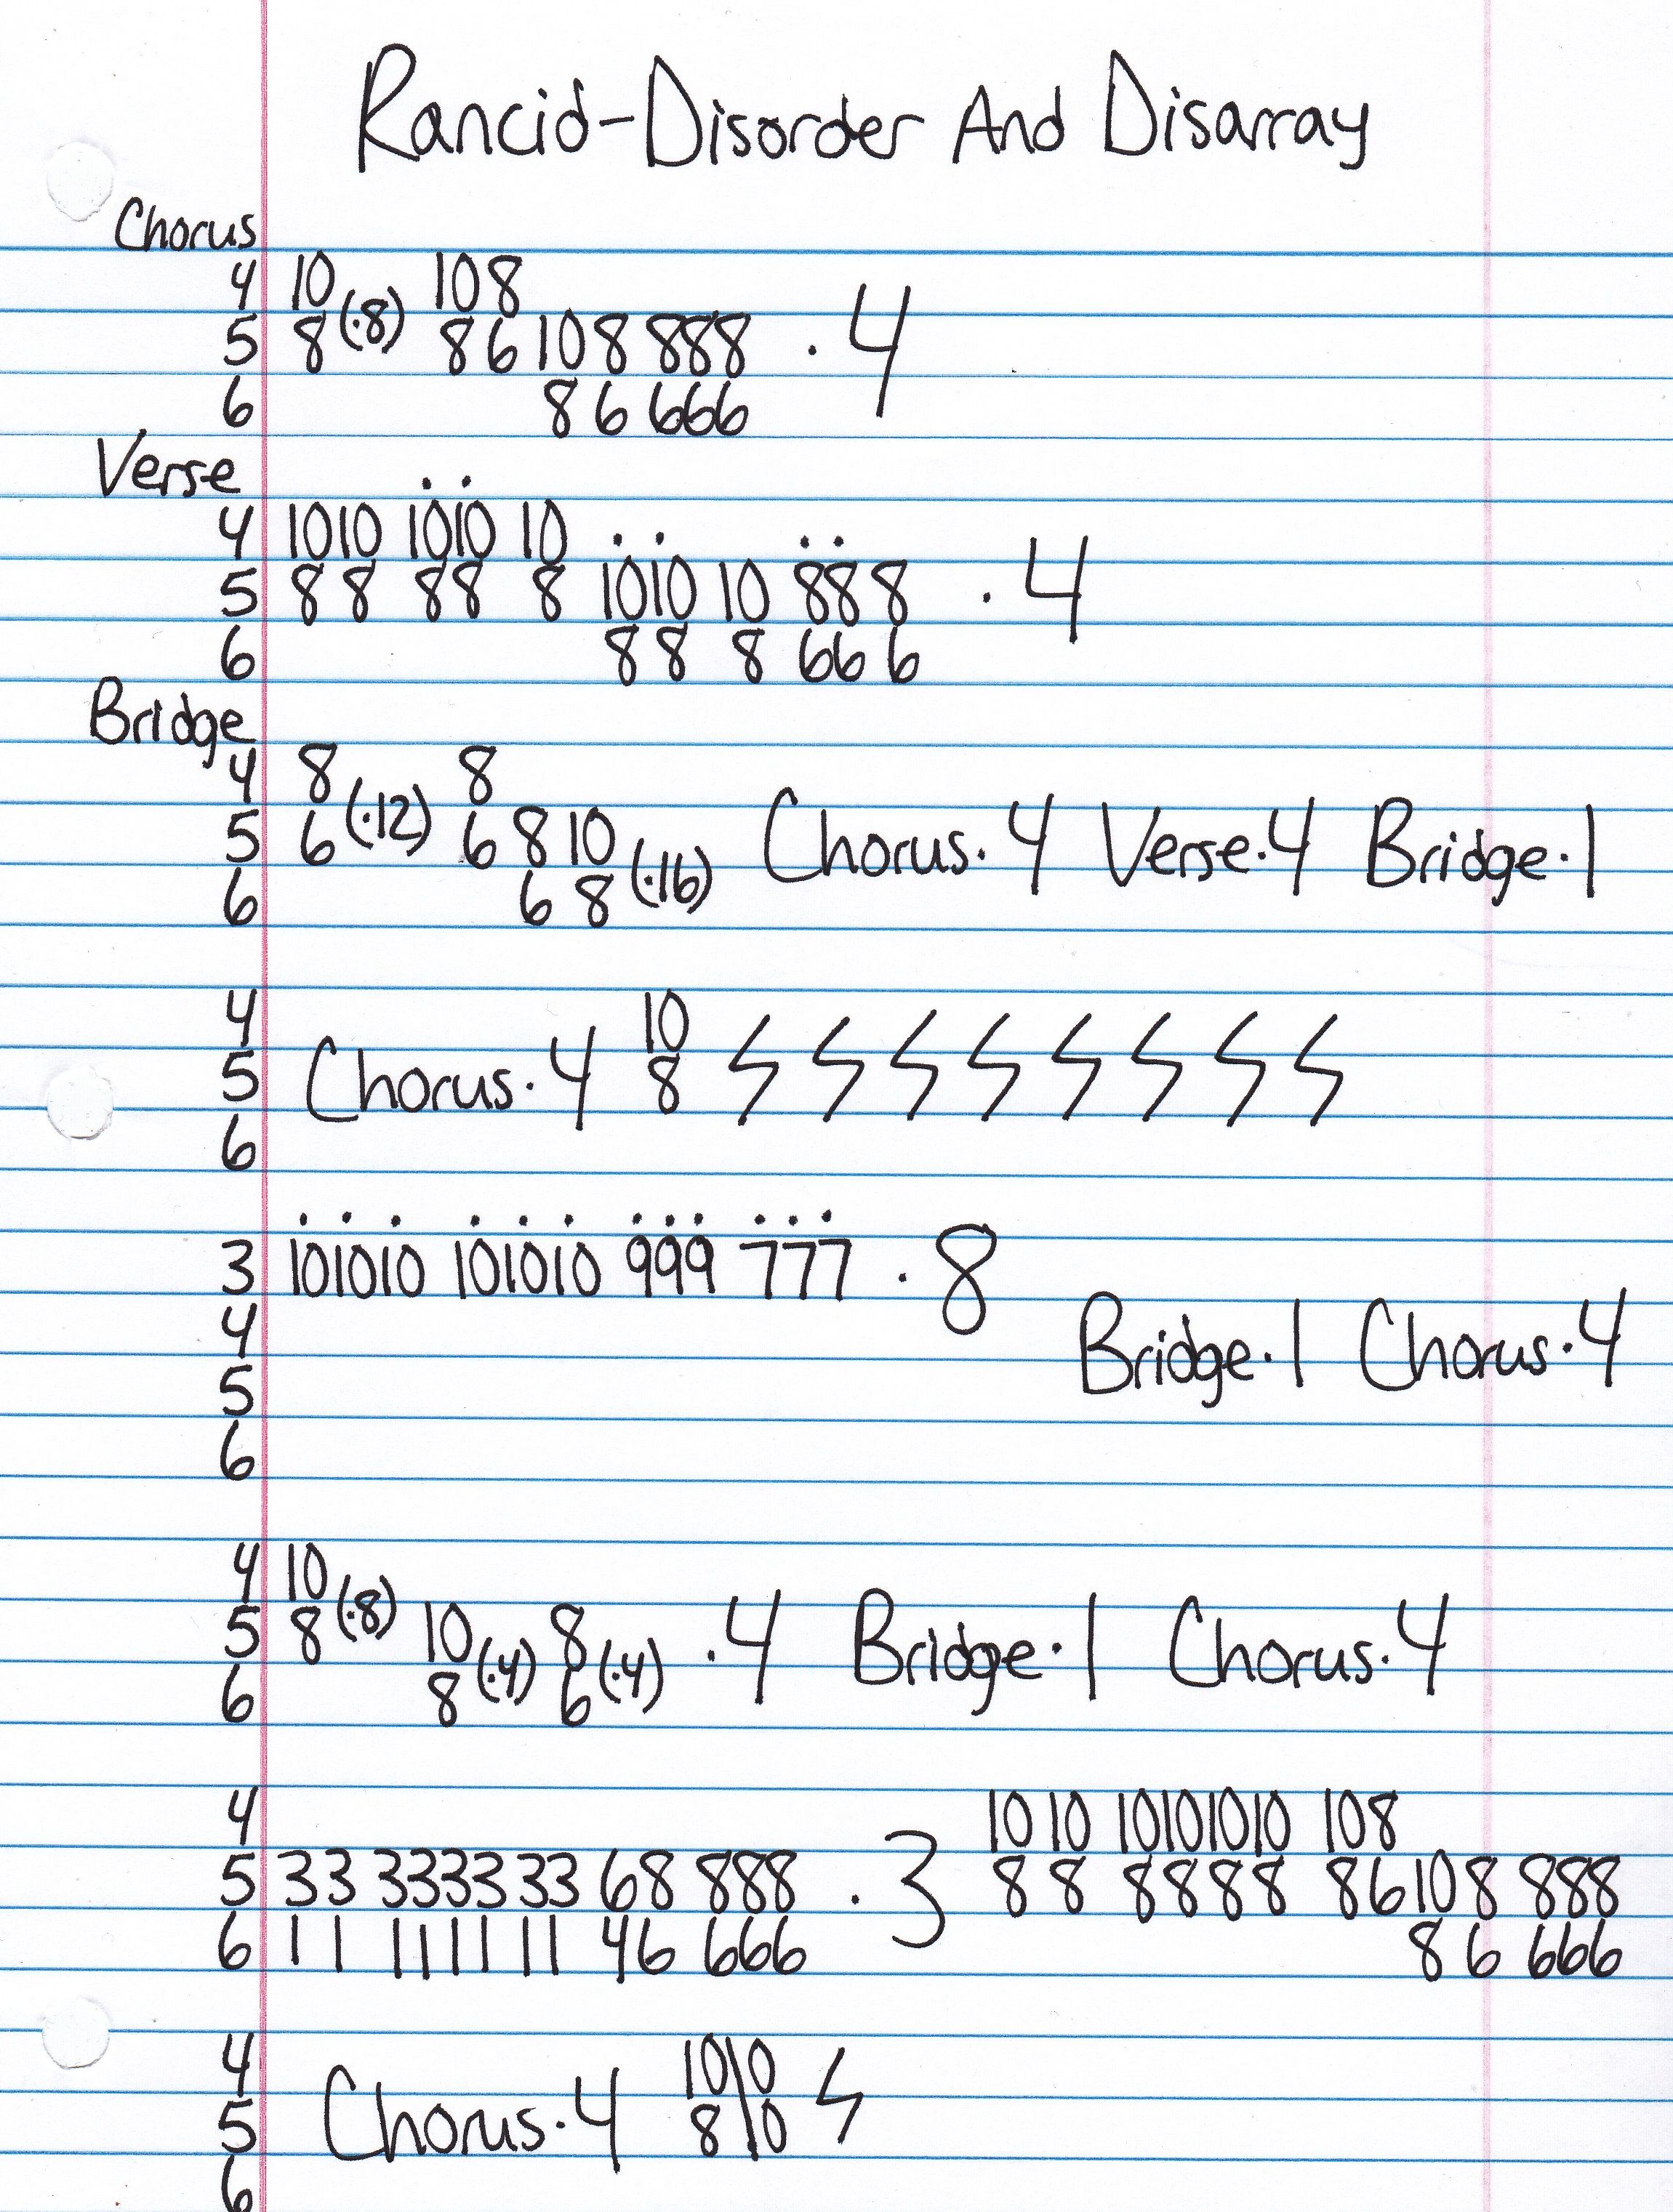 Rancid-Disorder And Disarray
Chorus
4 10 (·8) 10 8
5 8 8 6 10 8 8 8 8 · 4
6 8 6 6 6 6
Verse
4 10 10 10 10 10
5 8 8 8 8 8 10 10 10 8 8 8 · 4
6 8 8 8 6 6 6
Bridge
4 8 (·12) 8
5 6 6 8 10 (·16) Chorus·4 Verse·4 Bridge·1
6 6 8
4 10
5 Chorus·4 8
6
3 10 10 10 10 10 10 9 9 9 7 7 7 · 8
4 Bridge·1 Chorus·4
5
6
4 10 (·8)
5 8 10 (·4) 8 (·4) · 4 Bridge·1 Chorus·4
6 8 6
4 10 10 10 10 10 10 10 8
5 3 3 3 3 3 3 3 3 6 8 8 8 8 · 3 8 8 8 8 8 8 8 6 10 8 8 8 8
6 1 1 1 1 1 1 1 1 4 6 6 6 6 8 6 6 6 6
4 10\0
5 Chorus·4 8\0
6